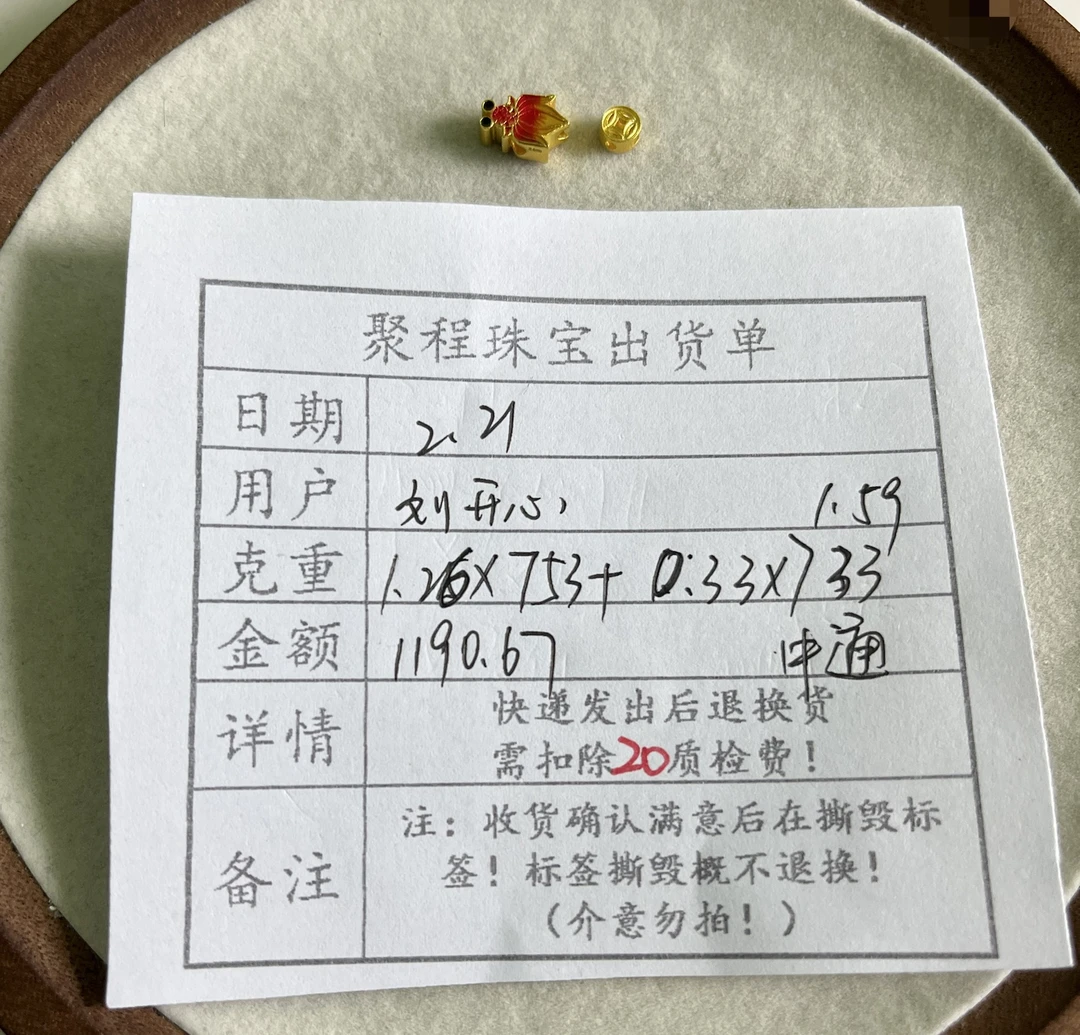 聚程珠宝出货单
日期 2.21
用户 刘开心 1.59
克重 1.26×753+0.33×733
金额 1190.67 中通
详情 快递发出后退换货
需扣除20质检费!
备注 注:收货确认满意后在撕毁标
签!标签撕毁概不退换!
(介意勿拍!)